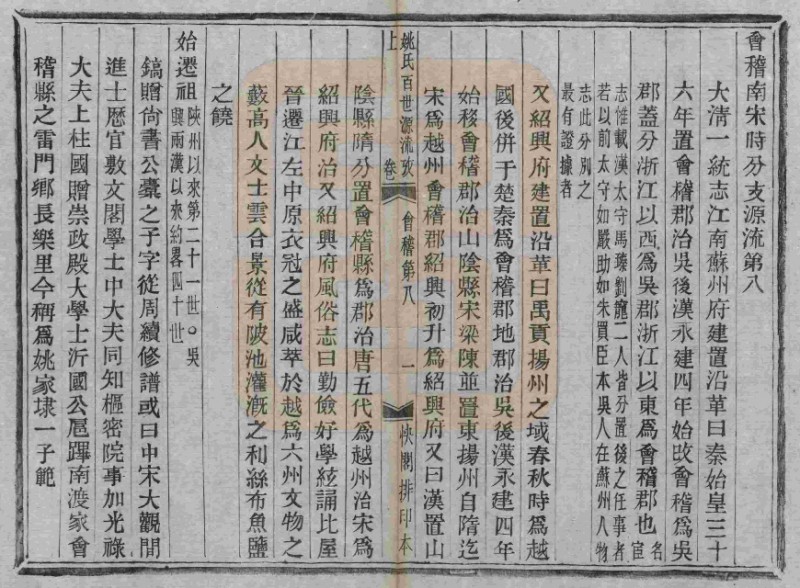 會稽南宋時分支源流第八
大清一統志江南蘇州府建置沿革曰秦始皇三十
六年置會稽郡治吳後漢永建四年始改會稽爲吳
郡蓋分浙江以西爲吳郡浙江以東爲會稽郡也名宦
志惟載漢太守馬瑧劉寵二人皆分置後之任事者
若以前太守如嚴助如朱買臣本吳人在蘇州人物
志此分別之
最有證據者
又紹興府建置沿革曰禹貢揚州之域春秋時爲越
國後併于楚秦爲會稽郡地郡治吳後漢永建四年
始移會稽郡治山陰縣宋梁陳並置東揚州自隋迄
宋爲越州會稽郡紹興初升爲紹興府又曰漢置山
姚氏百世源流攷 卷上 會稽第八 一 快閣排印本
陰縣隋分置會稽縣爲郡治唐五代爲越州治宋爲
紹興府治又紹興府風俗志曰勤儉好學絃誦比屋
晉遷江左中原衣冠之盛咸萃於越爲六州文物之
藪高人文士雲合景從有陂池灌漑之利絲布魚鹽
之饒
始遷祖陝州以來第二十一世○吳
興兩漢以來約畧四十世
鎬贈尙書公橐之子字從周續修譜或曰中宋大觀間
進士歷官敷文閣學士中大夫同知樞密院事加光祿
大夫上柱國贈崇政殿大學士沂國公扈蹕南渡家會
稽縣之雷門鄉長樂里今稱爲姚家埭一子範